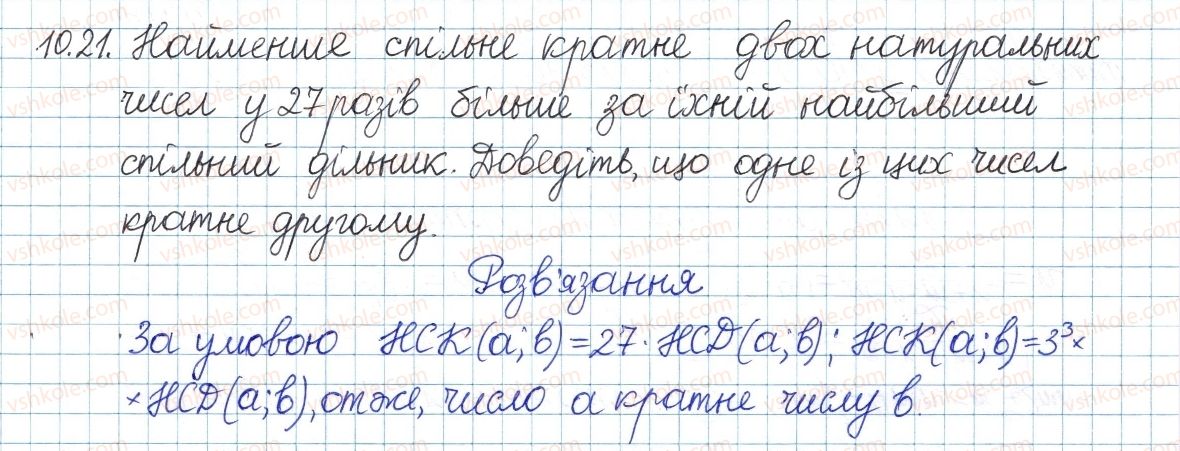 10.21. Найменше спільне кратне двох натуральних
чисел у 27 разів більше за їхній найбільший
спільний дільник. Доведіть, що одне із цих чисел
кратне другому.
Розв'язання
За умовою НСК(а;в)=27·НСД(а;в); НСК(а;в)=3³×
×НСД(а;в), отже, число а кратне числу в.